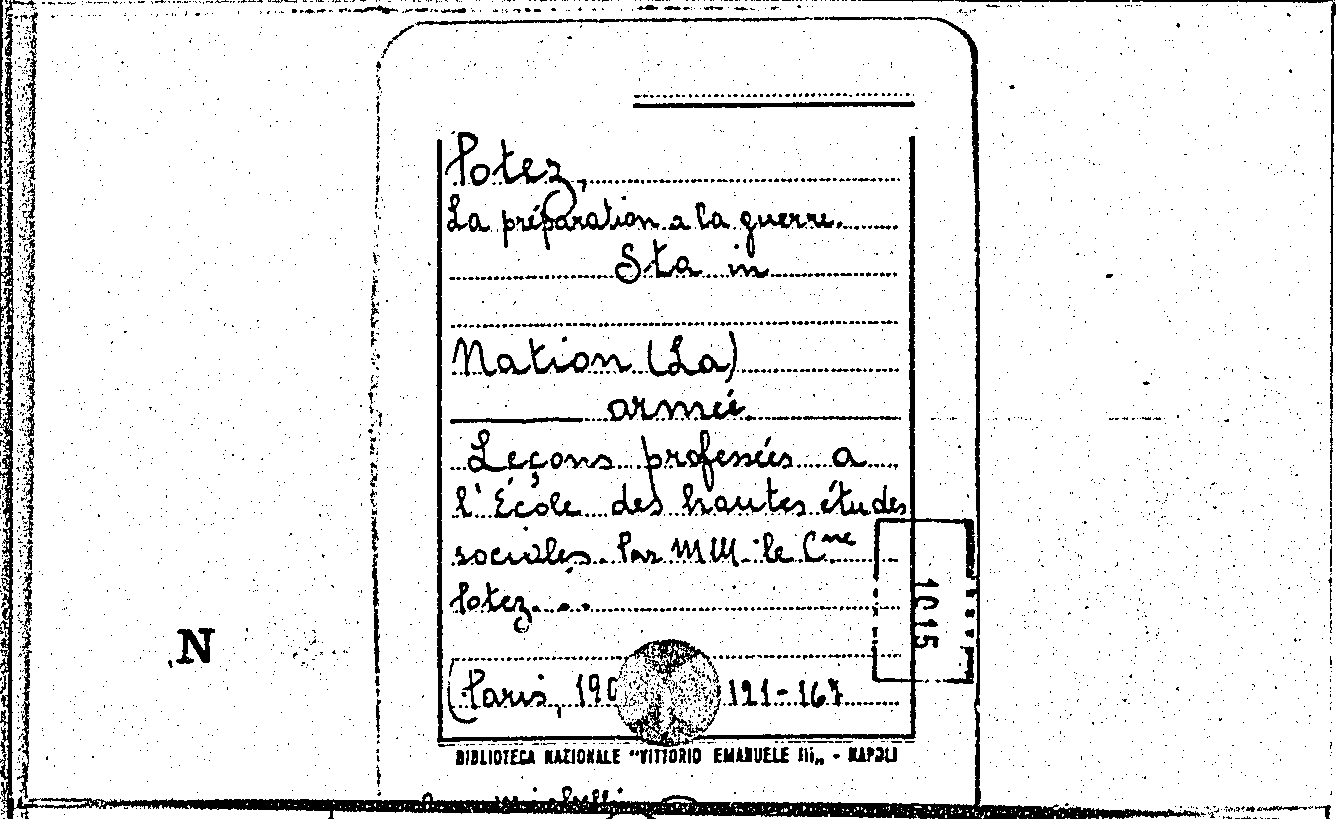 Potez,
La préparation a la guerre.
Sta in
Nation (La)
armée.
Leçons professées a
l'École des hautes études
sociales. Par MM. le Cne
Potez...
(Paris, 190 121-167
1015
N
BIBLIOTECA NAZIONALE "VITTORIO EMANUELE III„ - NAPOLI